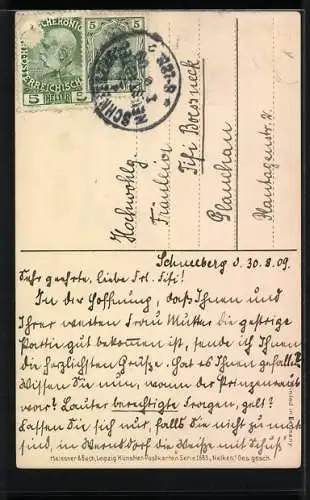 5 5
5 HELLER 5
Hochwohlg.
Fräulein
Fifi Boessneck
Glauchau
Plantagenstr.
Schneeberg d. 30.8.09.
Sehr geehrte, liebe Frl. Fifi!
In der Hoffnung, daß Ihnen und
Ihrer werten Frau Mutter die gestrige
Partie gut bekommen ist, sende ich Ihnen
die herzlichsten Grüße. Hat es Ihnen gefallen?
Wissen Sie nun, wann der Prinzenraub
war? Lauter berechtigte Fragen, gelt?
Lassen Sie sich nur, falls Sie nicht zu
sind, in Wernsdorf die Weiße mit Schuß
Meissner & Buch, Leipzig Künstler-Postkarten Serie 1683 „Nelken“ Ges. gesch.
Printed in Germany